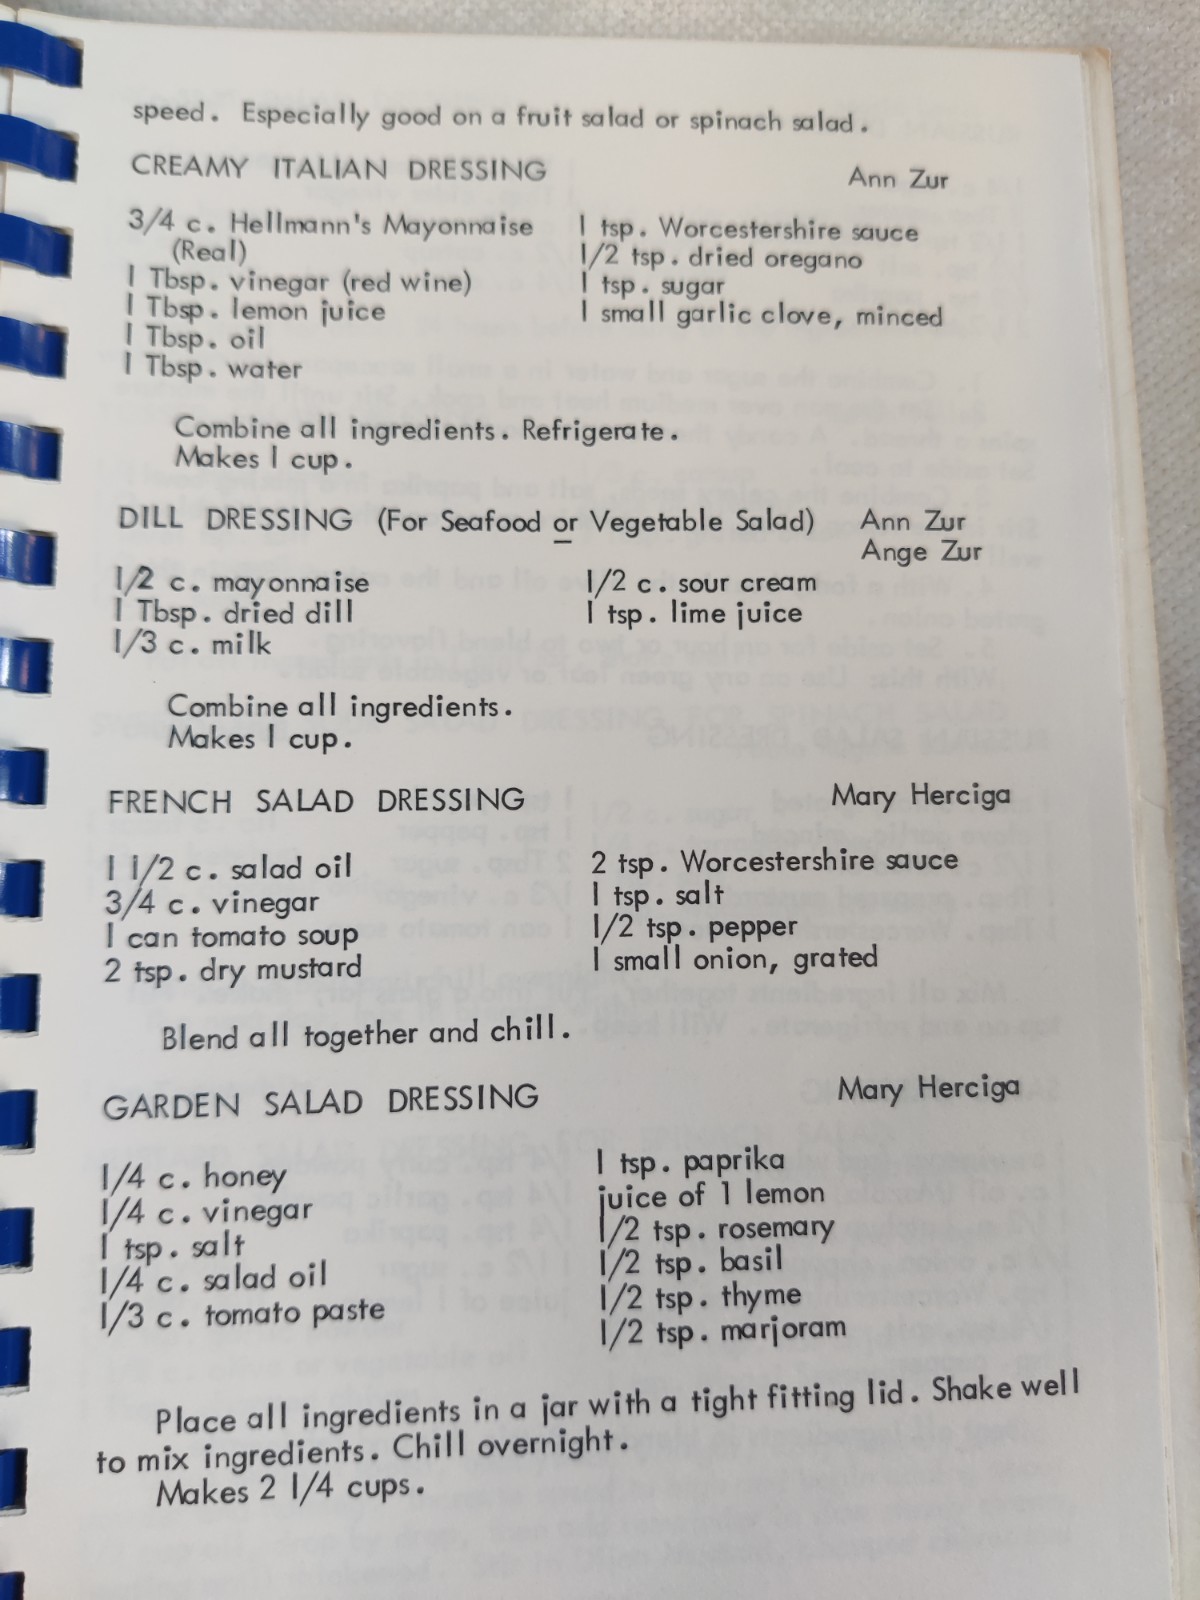 speed. Especially good on a fruit salad or spinach salad.
CREAMY ITALIAN DRESSING Ann Zur
3/4 c. Hellmann's Mayonnaise
(Real)
1 Tbsp. vinegar (red wine)
1 Tbsp. lemon juice
1 Tbsp. oil
1 Tbsp. water
1 tsp. Worcestershire sauce
1/2 tsp. dried oregano
1 tsp. sugar
1 small garlic clove, minced
Combine all ingredients. Refrigerate.
Makes 1 cup.
DILL DRESSING (For Seafood or Vegetable Salad) Ann Zur
Ange Zur
1/2 c. mayonnaise
1 Tbsp. dried dill
1/3 c. milk
1/2 c. sour cream
1 tsp. lime juice
Combine all ingredients.
Makes 1 cup.
FRENCH SALAD DRESSING Mary Herciga
1 1/2 c. salad oil
3/4 c. vinegar
1 can tomato soup
2 tsp. dry mustard
2 tsp. Worcestershire sauce
1 tsp. salt
1/2 tsp. pepper
1 small onion, grated
Blend all together and chill.
GARDEN SALAD DRESSING Mary Herciga
1/4 c. honey
1/4 c. vinegar
1 tsp. salt
1/4 c. salad oil
1/3 c. tomato paste
1 tsp. paprika
juice of 1 lemon
1/2 tsp. rosemary
1/2 tsp. basil
1/2 tsp. thyme
1/2 tsp. marjoram
Place all ingredients in a jar with a tight fitting lid. Shake well
to mix ingredients. Chill overnight.
Makes 2 1/4 cups.